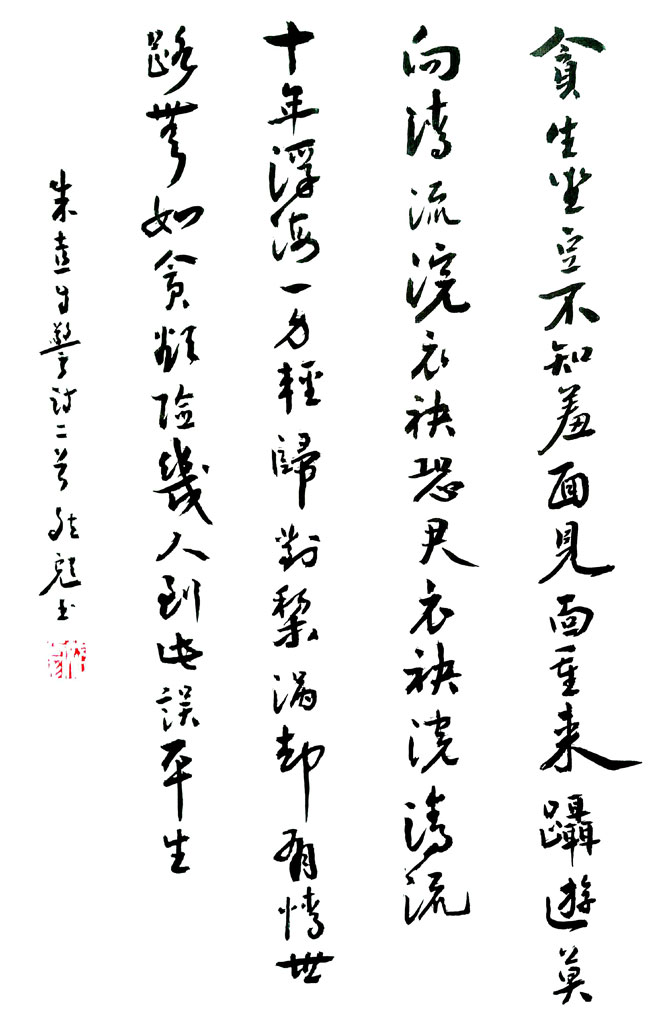 貪生坐豆不知羞面見面重来躡遊莫
向清流浣衣袂恐君衣袂浣清流
十年浮海一身輕歸對黎渦却有情世
路無如貪欲險幾人到此誤平生
朱熹自警詩二首 書